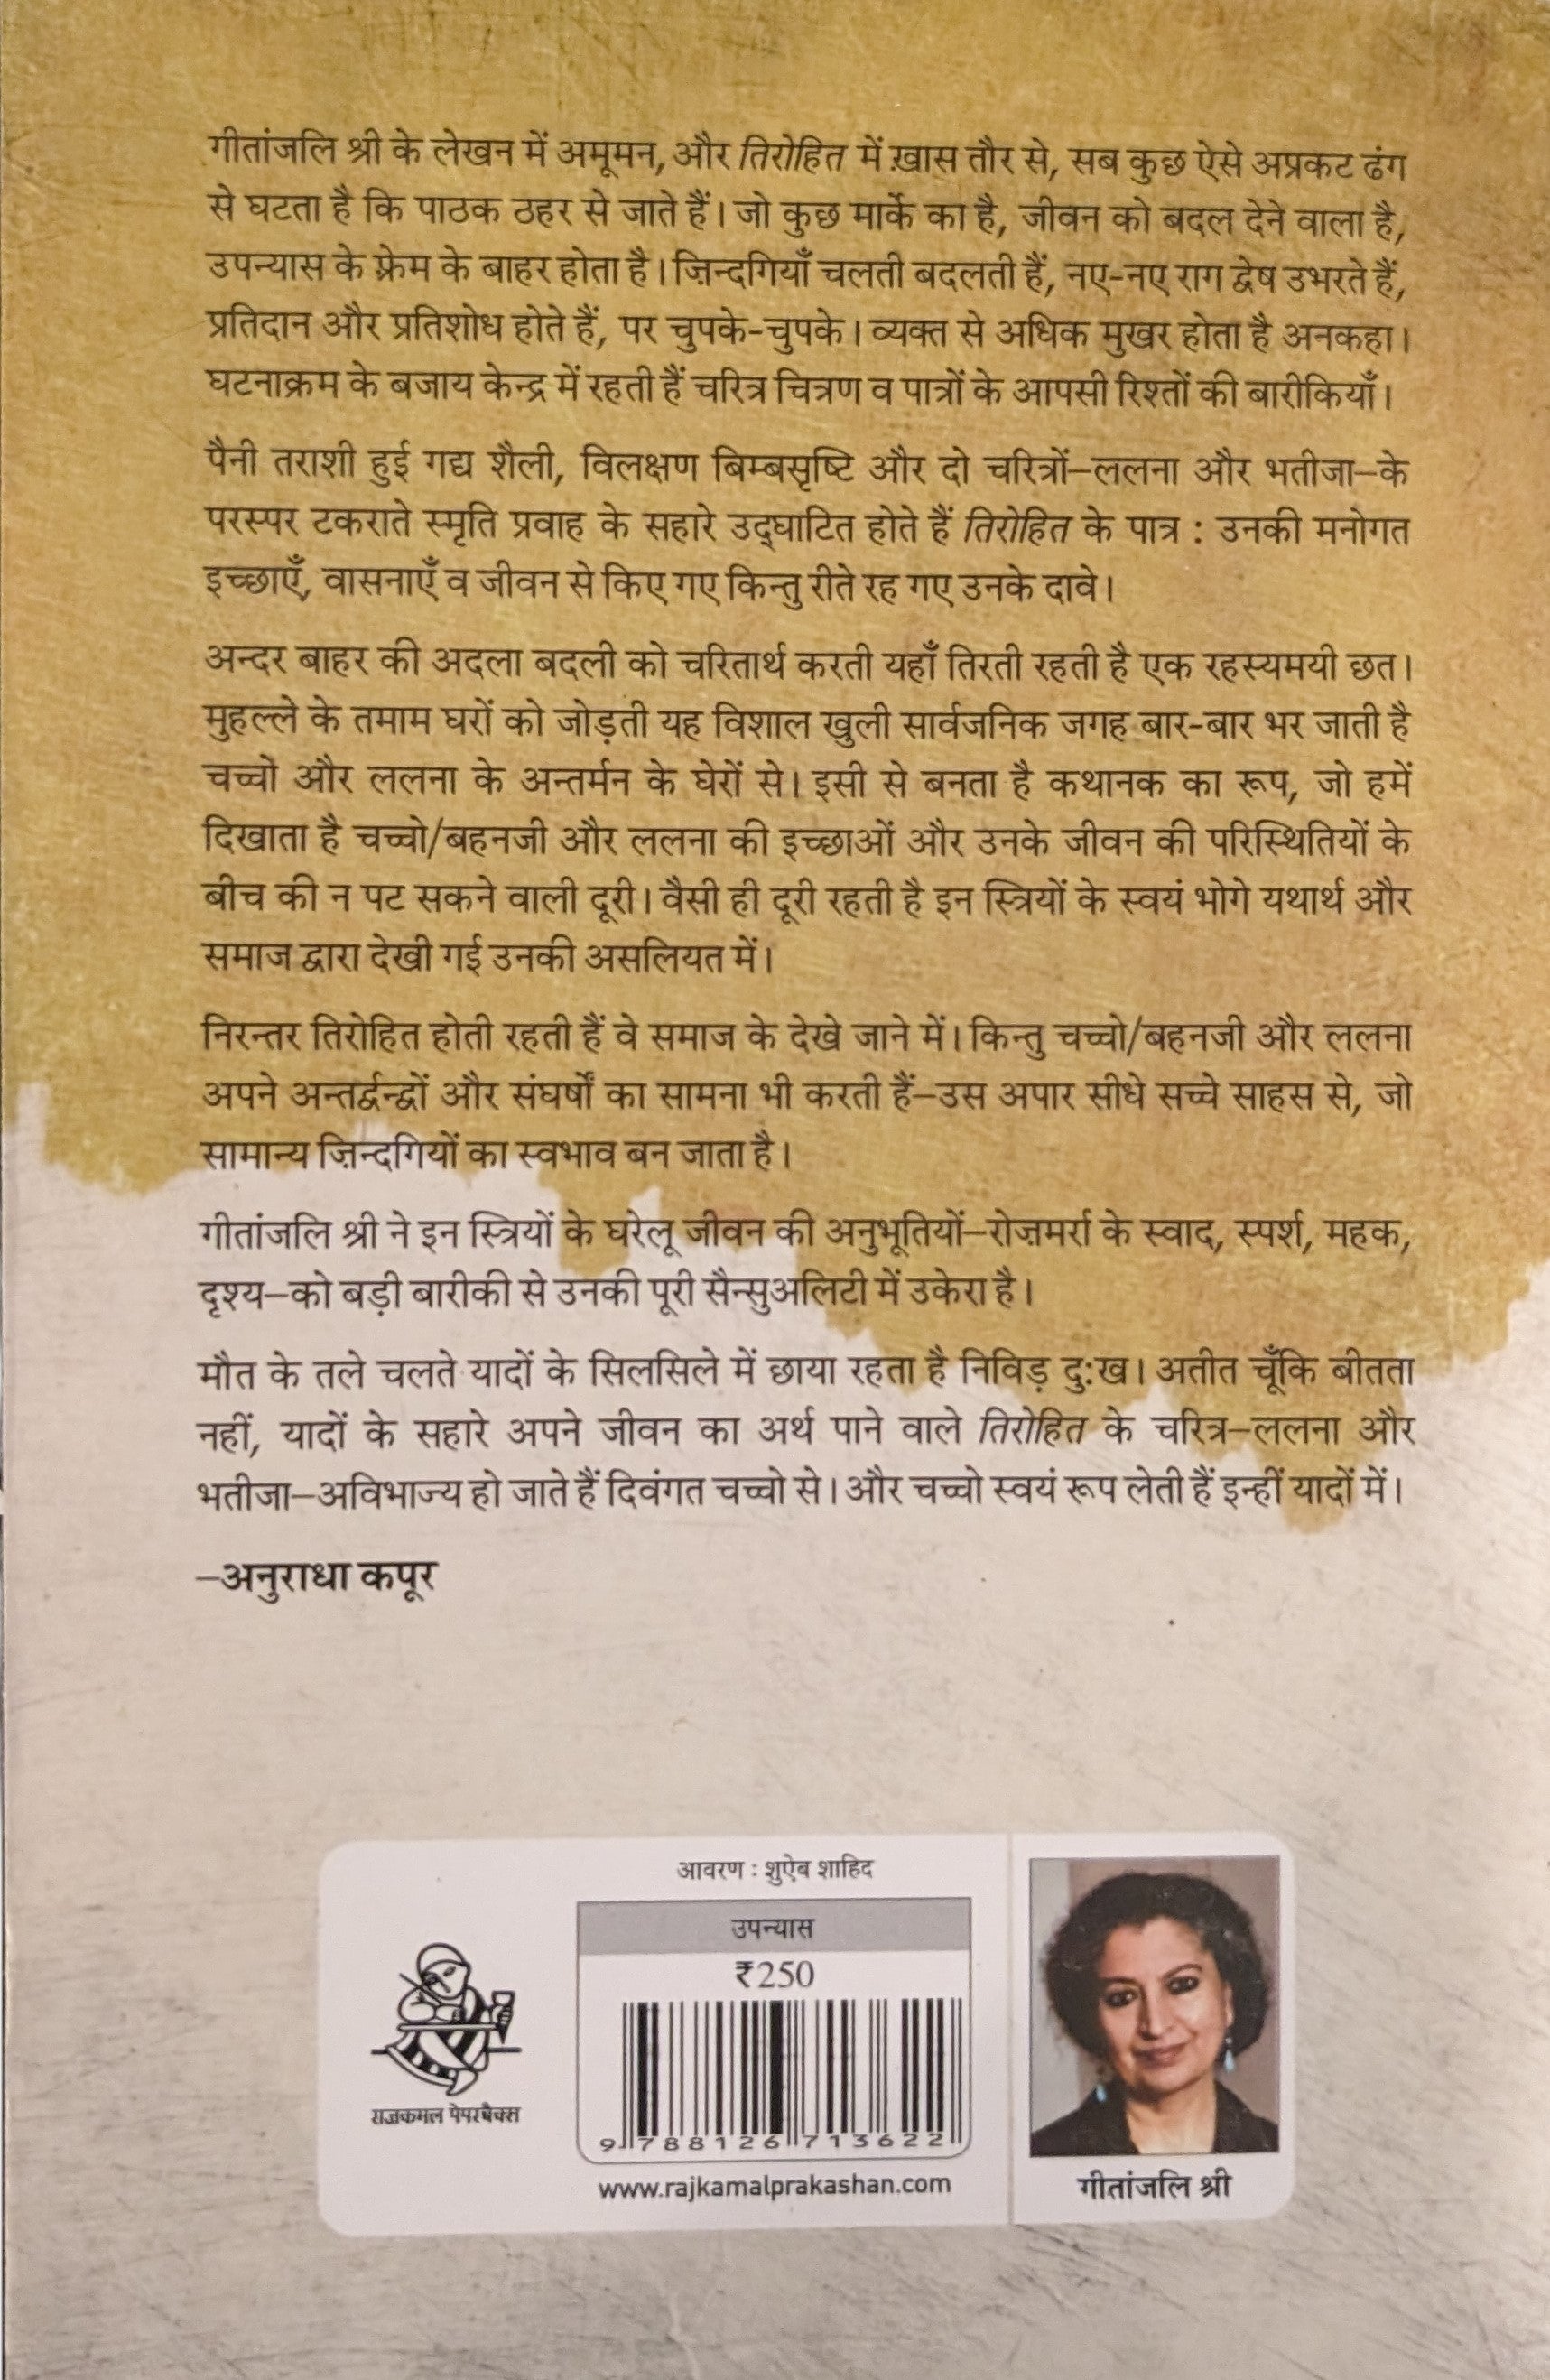 गीतांजलि श्री के लेखन में अमूमन, और तिरोहित में ख़ास तौर से, सब कुछ ऐसे अप्रकट ढंग
से घटता है कि पाठक ठहर से जाते हैं। जो कुछ मार्के का है, जीवन को बदल देने वाला है,
उपन्यास के फ़्रेम के बाहर होता है। ज़िन्दगियाँ चलती बदलती हैं, नए-नए राग द्वेष उभरते हैं,
प्रतिदान और प्रतिशोध होते हैं, पर चुपके-चुपके। व्यक्त से अधिक मुखर होता है अनकहा।
घटनाक्रम के बजाय केन्द्र में रहती हैं चरित्र चित्रण व पात्रों के आपसी रिश्तों की बारीकियाँ।
पैनी तराशी हुई गद्य शैली, विलक्षण बिम्बसृष्टि और दो चरित्रों—ललना और भतीजा—के
परस्पर टकराते स्मृति प्रवाह के सहारे उद्‌घाटित होते हैं तिरोहित के पात्र : उनकी मनोगत
इच्छाएँ, वासनाएँ व जीवन से किए गए किन्तु रीते रह गए उनके दावे।
अन्दर बाहर की अदला बदली को चरितार्थ करती यहाँ तिरती रहती है एक रहस्यमयी छत।
मुहल्ले के तमाम घरों को जोड़ती यह विशाल खुली सार्वजनिक जगह बार-बार भर जाती है
चच्चो और ललना के अन्तर्मन के घेरों से। इसी से बनता है कथानक का रूप, जो हमें
दिखाता है चच्चो/बहनजी और ललना की इच्छाओं और उनके जीवन की परिस्थितियों के
बीच की न पट सकने वाली दूरी। वैसी ही दूरी रहती है इन स्त्रियों के स्वयं भोगे यथार्थ और
समाज द्वारा देखी गई उनकी असलियत में।
निरन्तर तिरोहित होती रहती हैं वे समाज के देखे जाने में। किन्तु चच्चो/बहनजी और ललना
अपने अन्तर्द्वन्द्वों और संघर्षों का सामना भी करती हैं—उस अपार सीधे सच्चे साहस से, जो
सामान्य ज़िन्दगियों का स्वभाव बन जाता है।
गीतांजलि श्री ने इन स्त्रियों के घरेलू जीवन की अनुभूतियों—रोज़मर्रा के स्वाद, स्पर्श, महक,
दृश्य—को बड़ी बारीकी से उनकी पूरी सैन्सुअलिटी में उकेरा है।
मौत के तले चलते यादों के सिलसिले में छाया रहता है निविड़ दुःख। अतीत चूँकि बीतता
नहीं, यादों के सहारे अपने जीवन का अर्थ पाने वाले तिरोहित के चरित्र—ललना और
भतीजा—अविभाज्य हो जाते हैं दिवंगत चच्चो से। और चच्चो स्वयं रूप लेती हैं इन्हीं यादों में।
—अनुराधा कपूर
आवरण : शुऐब शाहिद
उपन्यास
₹250
9 788126 713622
www.rajkamalprakashan.com
राजकमल पेपरबैक्स
गीतांजलि श्री